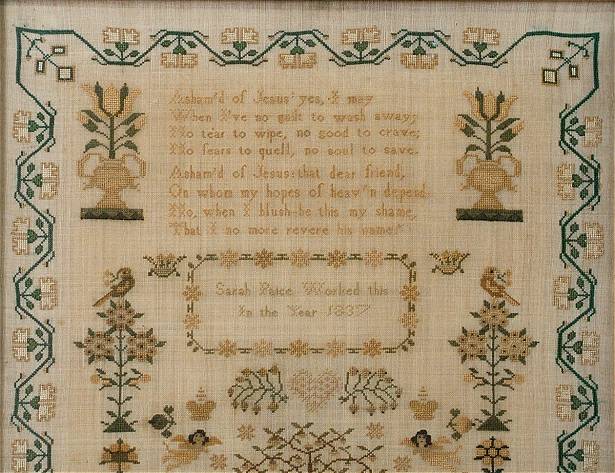 Asham'd of Jesus' yes, I may
When I've no guilt to wash away;
No tear to wipe, no good to crave;
No fears to quell, no soul to save.
Asham'd of Jesus: that dear friend,
On whom my hopes of heav'n depend
No, when I blush-be this my shame,
That I no more revere his name."
Sarah Paice Worked this
In the Year 1837